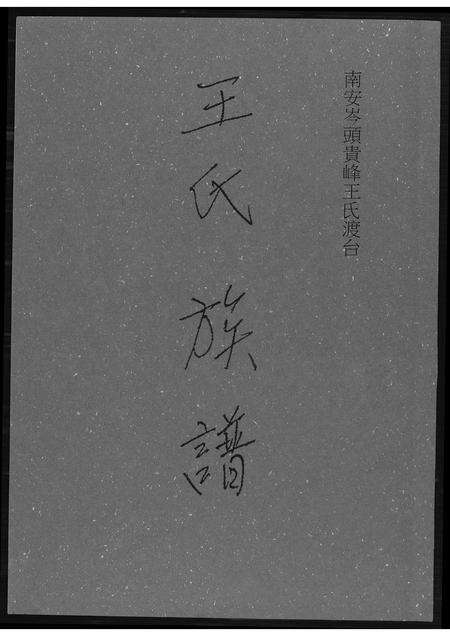 南安岑頭貴峰王氏渡台
王氏族譜